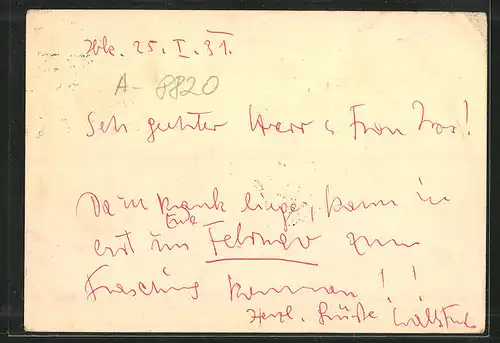 25. I. 31.
A-8820
Sehr geehrter Herr u Frau
Da ich krank liege, kann ich
Ende
erst im Februar zum
Fasching kommen!!
Herzl. Grüße